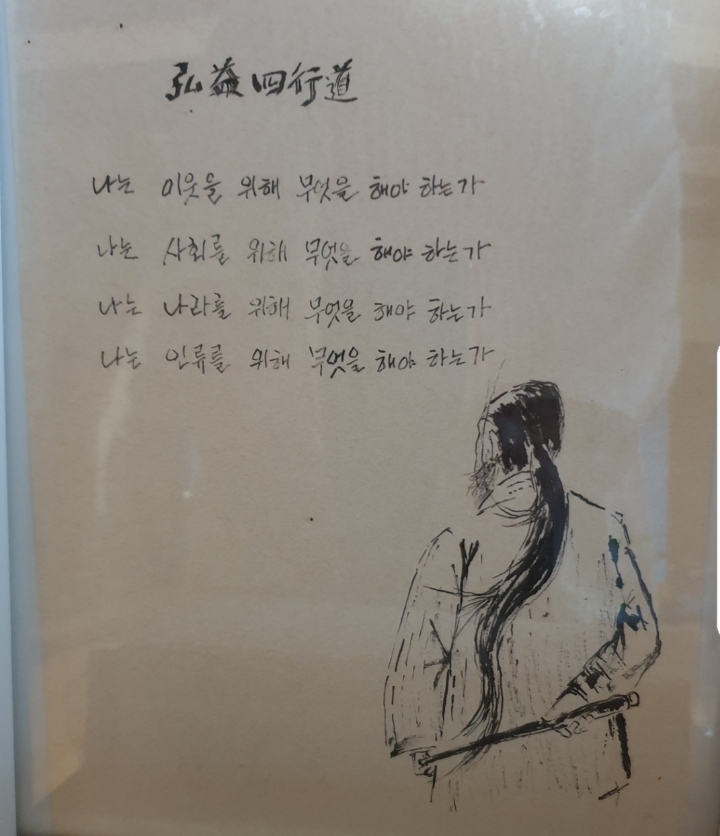 弘益四行道
나는 이웃을 위해 무엇을 해야 하는가
나는 사회를 위해 무엇을 해야 하는가
나는 나라를 위해 무엇을 해야 하는가
나는 인류를 위해 무엇을 해야 하는가